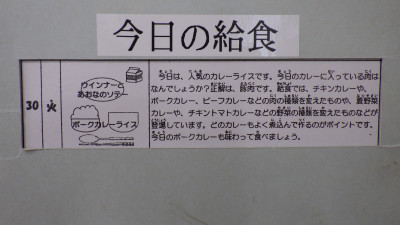 今日の給食
30
火
ウインナーと
あおなのソテー
ポークカレーライス
今日は、人気のカレーライスです。今日のカレーに入っている肉は
なんでしょうか？正解は、豚肉です。給食では、チキンカレーや、
ポークカレー、ビーフカレーなどの肉の種類を変えたものや、夏野菜
カレーや、チキントマトカレーなどの野菜の種類を変えたものなどが
登場しています。どのカレーもよく煮込んで作るのがポイントです。
今日のポークカレーも味わって食べましょう。